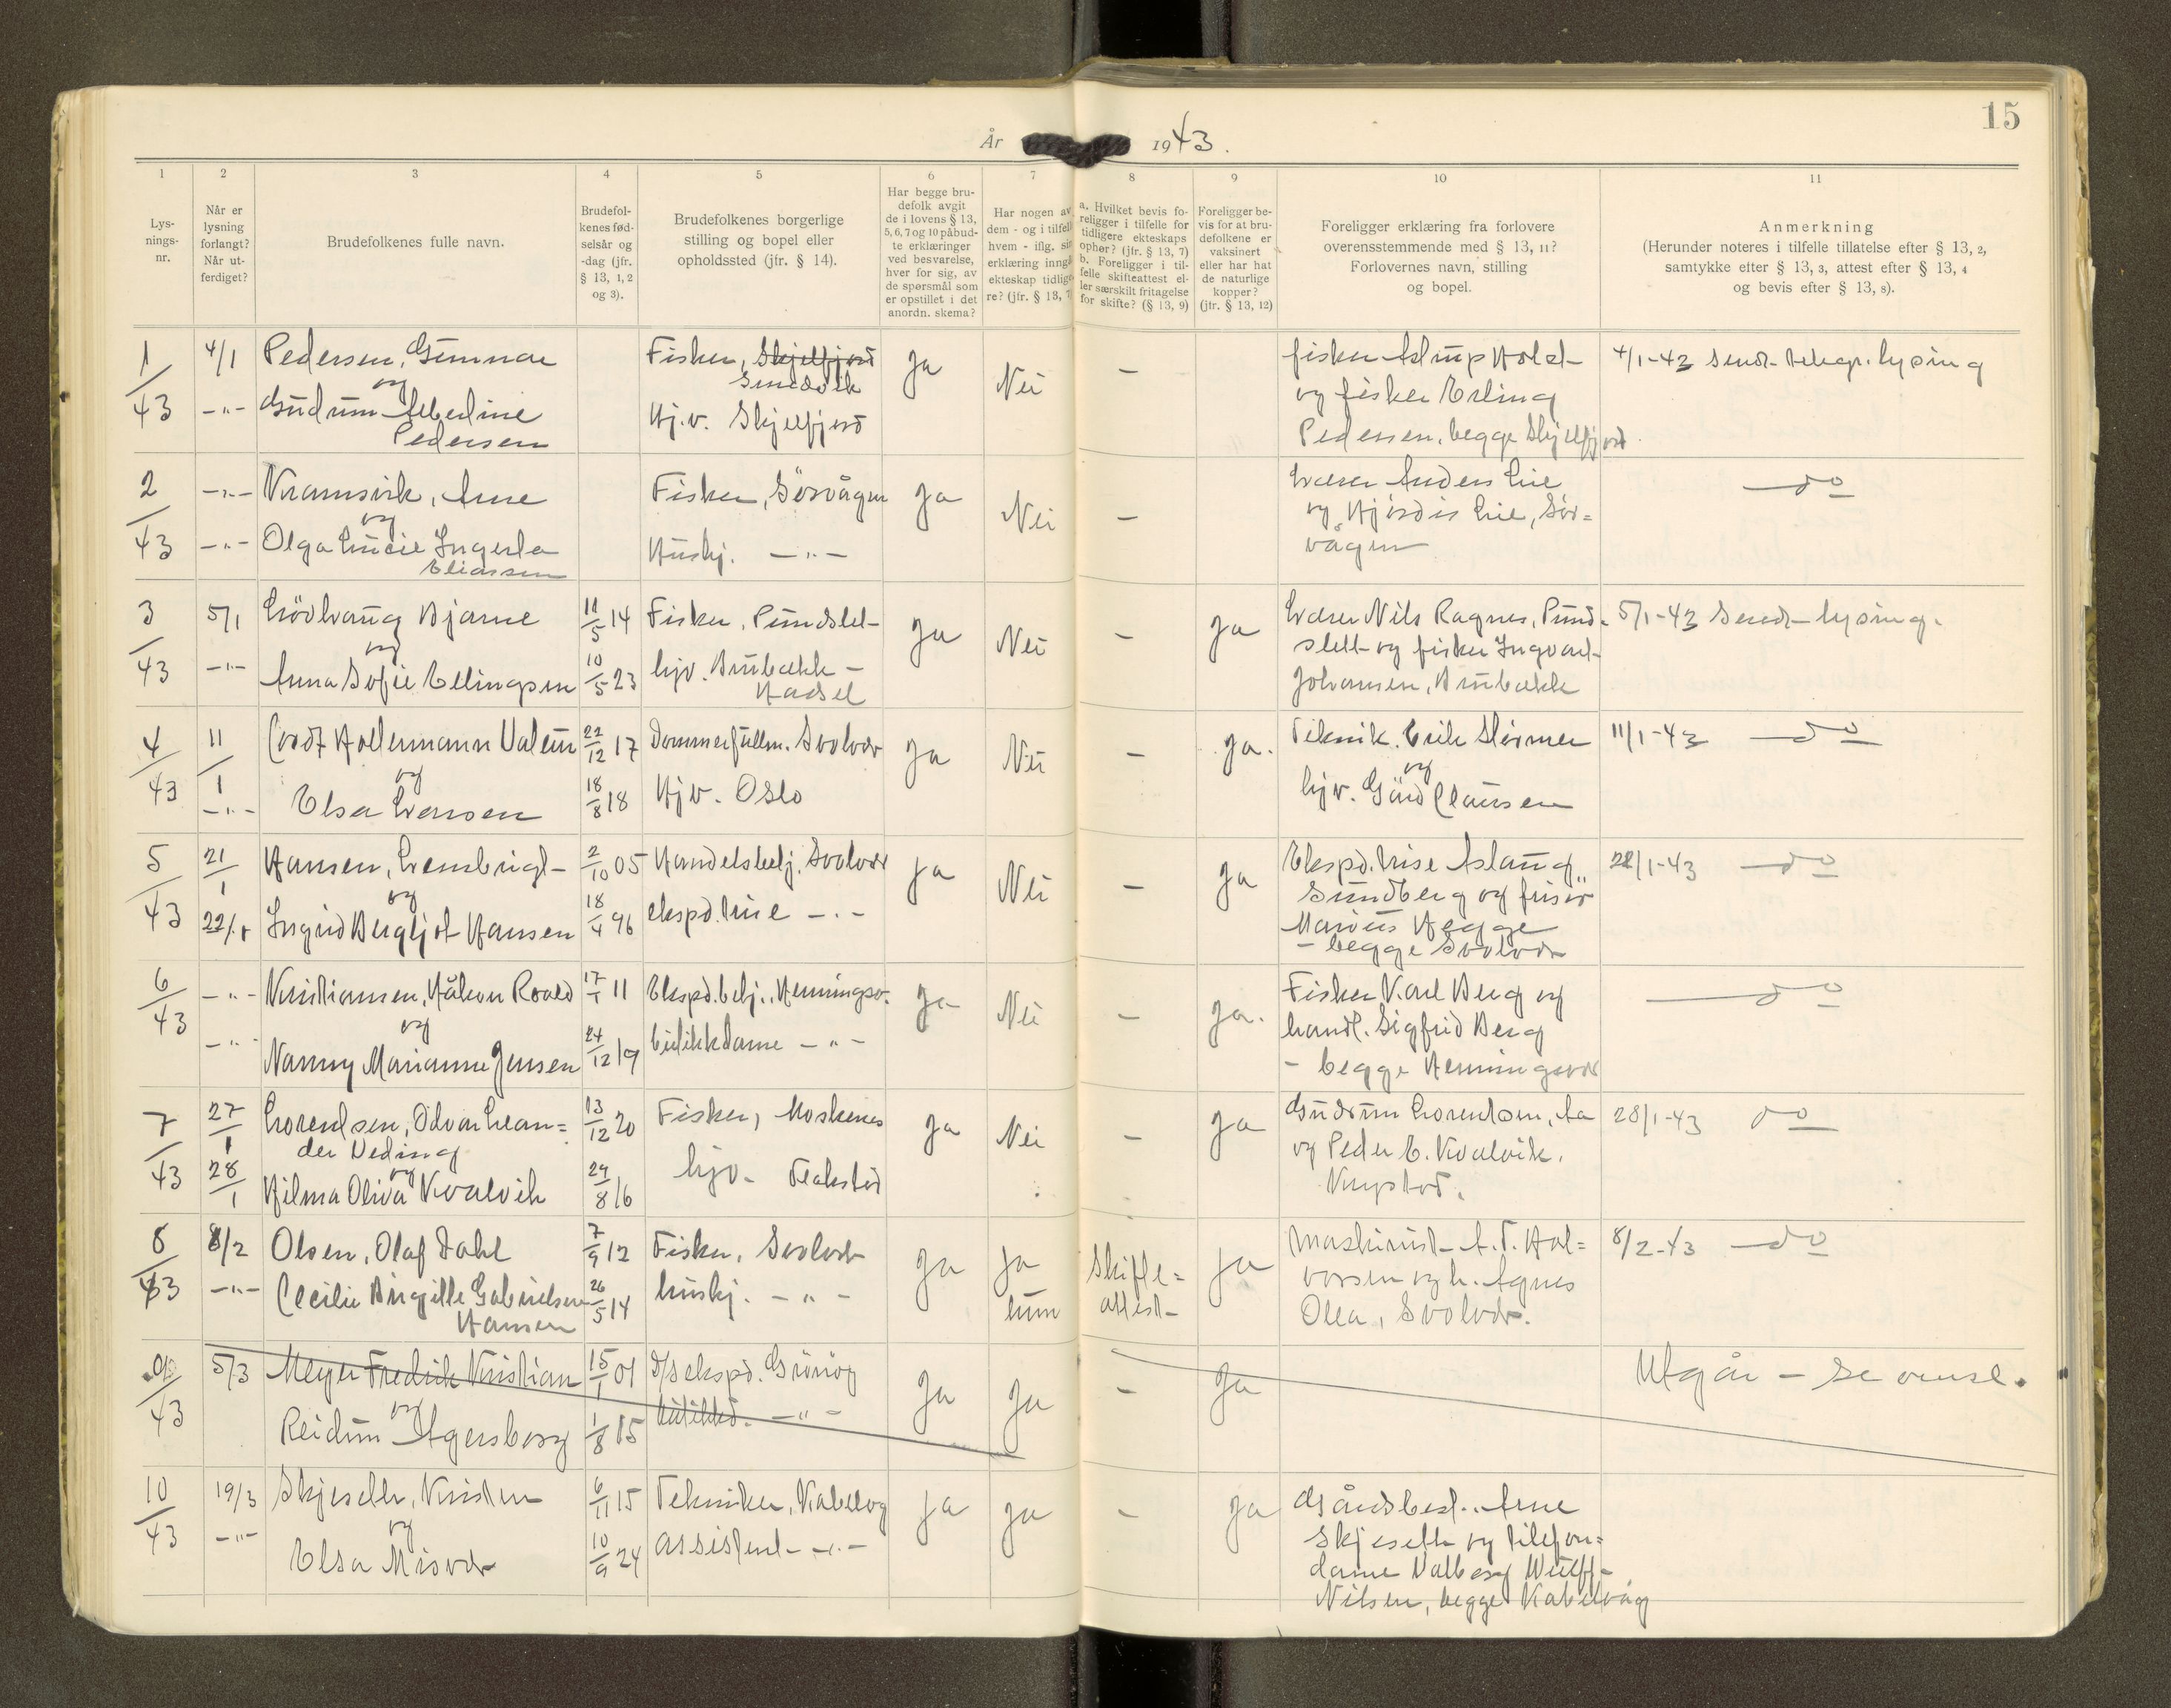 15
År 1943.
1 2 3 4 5 6 7 8 9 10 11
Lys-
nings-
nr.
Når er
lysning
forlangt?
Når ut-
ferdiget?
Brudefolkenes fulle navn.
Brudefol-
kenes fød-
selsår og
-dag (jfr.
§ 13, 1, 2
og 3).
Brudefolkenes borgerlige
stilling og bopel eller
opholdssted (jfr. § 14).
Har begge bru-
defolk avgit
de i lovens § 13,
5, 6, 7 og 10 påbud-
te erklæringer
ved besvarelse,
hver for sig, av
de spørsmål som
er opstillet i det
anordn. skema?
Har nogen av
dem - og i tilfell
hvem - iflg. sin
erklæring inngå
ekteskap tidlige
re? (jfr. § 13, 7
a. Hvilket bevis fo-
religger i tilfelle for
tidligere ekteskaps
ophør? (jfr. § 13, 7)
b. Foreligger i til-
felle skifteattest el-
ler særskilt fritagelse
for skifte? (§ 13, 9)
Foreligger be-
vis for at bru-
defolkene er
vaksinert
eller har hat
de naturlige
kopper?
(jfr. § 13, 12)
Foreligger erklæring fra forlovere
overensstemmende med § 13, 11?
Forlovernes navn, stilling
og bopel.
Anmerkning
(Herunder noteres i tilfelle tillatelse efter § 13, 2,
samtykke efter § 13, 3, attest efter § 13, 4
og bevis efter § 13, 8).
1/43 4/1 -"-
Pedersen, Gunnar
og
Gudrun Alberdine
Pedersen
Fisker, Skjelfjord
Sundvik
Hj.v. Skjelfjord
Ja Nei -
fisker Astrup Hold
og fisker Erling
Pedersen, begge Skjelfjord
4/1-43 Sendt telegr. lysing
2/43 -"- -"-
Kramsvik, Arne
og
Olga Lucie Ingerla
Eliassen
Fisker, Sørvågen
Huskj. -"-
Ja Nei -
Lærer Anders Lie
og Hjördis Lie, Sör=
vågen
do
3/43 5/1 -"-
Lövhaug Bjarne
og
Anna Sofie Ellingsen
11/5 14
10/5 23
Fisker, Pundslet
hjv. Brubakk -
Hadsel
Ja Nei - Ja
Lærer Nils Ragnes, Pund-
slett og fisker Ingvart
Johansen, Brubakk
5/1-43 Sendt lysing.
4/43 11/1 -"-
Cordt Holtermann Valeur
og
Elsa Larsen
22/12 17
18/8 18
Dommerfullm. Svolvær
Hjv. Oslo
Ja Nei - ja.
Teknik. Erik Størmer
og
hjv. Gurid Clausen
11/1-43 do
5/43 21/1 22/1
Hansen, Lembrigt
og
Ingrid Bergljot Hansen
2/10 05
18/4 96
Handelsbetj. Svolvær
ekspd.trise -"-
Ja Nei - Ja
Ekspd.trise Aslaug
Sundberg og frisør
Marius Hegge
- begge Svolvær
22/1-43 do
6/43 -"- -"-
Kristiansen, Håkon Roald
og
Nanny Marianne Jensen
17/1 11
24/12 19
Ekspd.betj., Henningsv.
butikkdame -"-
Ja Nei - Ja.
Fisker Karl Berg og
handl. Sigfrid Berg
- begge Henningsvær
do
7/43 27/1 28/1
Lorentsen, Odvar Lean=
der Veding
og
Hilma Oliva Kvalvik
13/12 20
29/8 16
Fisker, Moskenes
hjv. Flakstad
Ja Nei - Ja
Gudrun Lorentsen, Aa
og Peder E. Kvalvik,
Krystad.
28/1-43 do
8/43 8/2 -"-
Olsen, Olaf Dahl
Cecilie Birgitte Gabrielsen
Hansen
7/9 12
26/5 14
Fisker, Svolvær
huskj. -"-
Ja
Ja
hun
Skifte=
attest
Ja
Maskinist A. T. Hal=
vorsen og h. Agnes
Olea, Svolvær.
8/2-43 do
9/43 5/3
Meyer Fredrik Kristian
og
Reidun Agersborg
15/1 01
1/8 15
D/Sekspd. Grönög
butikkd. -"-
Ja Ja - Ja
Utgår - se omst.
10/43 19/3 -"-
Skjeseth, Kristen
og
Elsa Misvær
6/11 15
10/9 24
Tekniker, Kabelvåg
assistent -"-
Ja Ja - Ja
Gårdsbest. Arne
Skjeseth og telefon=
dame Valborg Wulff-
Nilsen, begge Kabelvåg